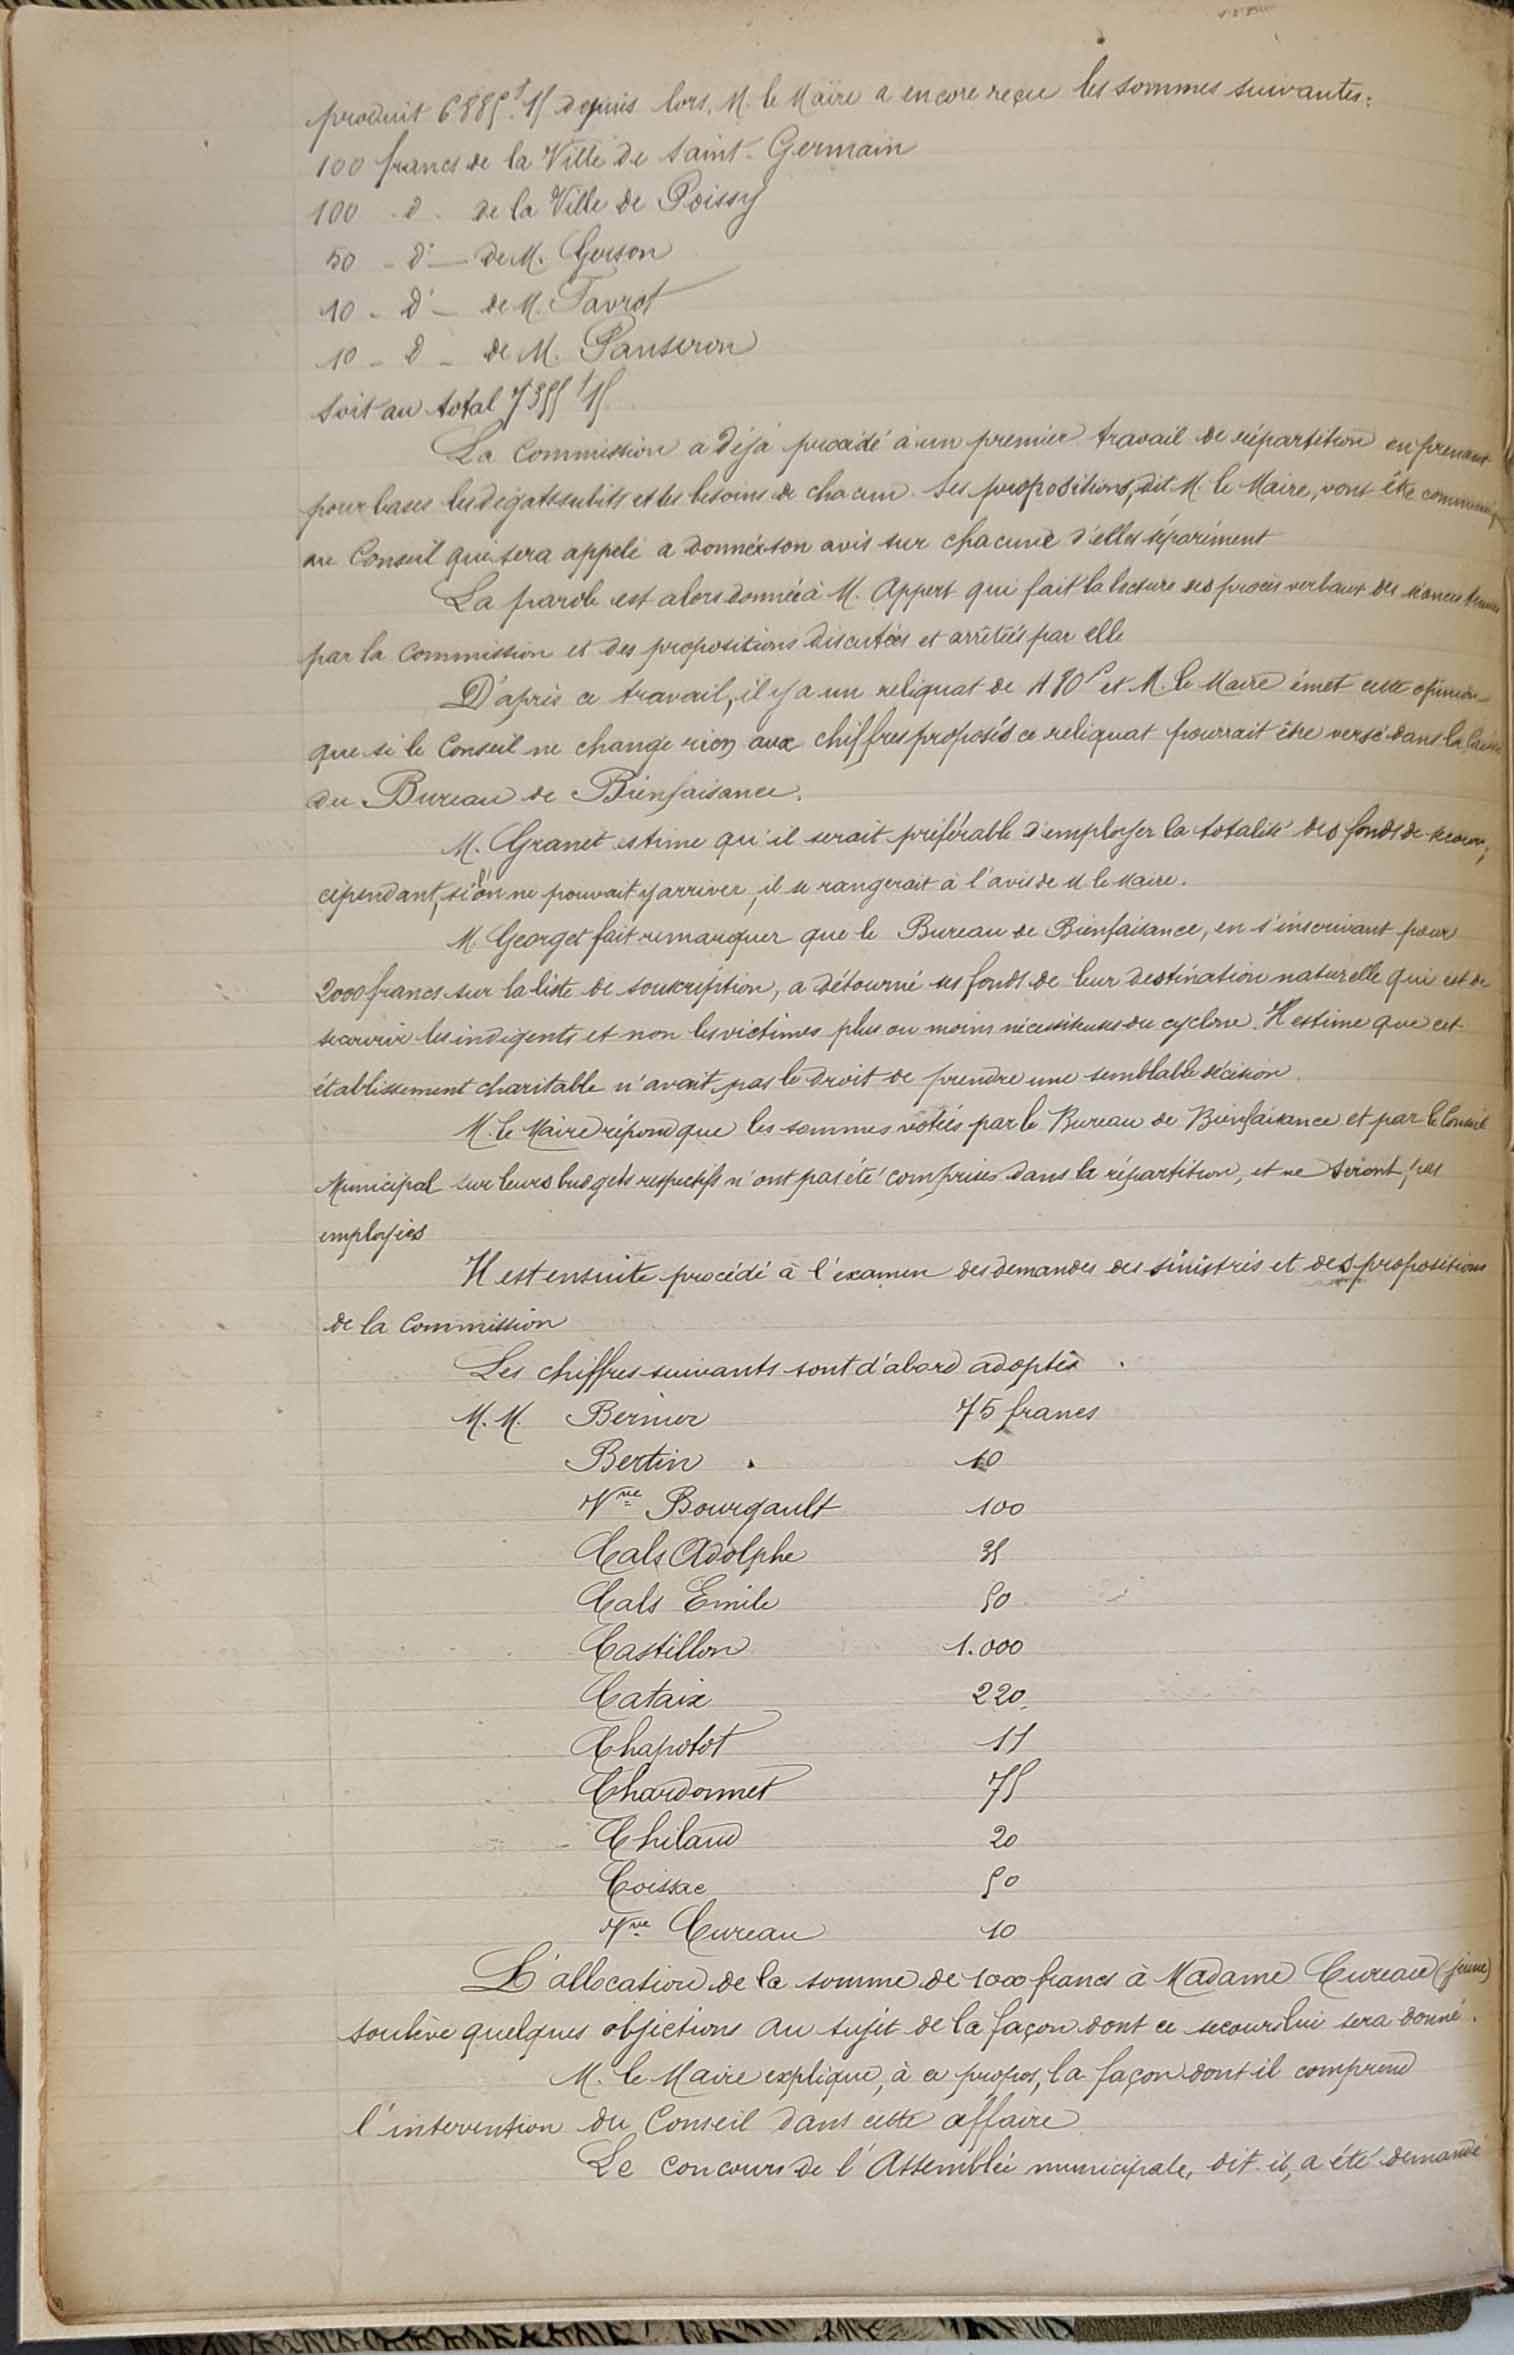 produit 6885f.15 depuis lors, M. le Maire a encore reçu les sommes suivantes:
100 francs de la Ville de Saint-Germain
100 - d - de la Ville de Poissy
50 - d° - de M. Gerson
10 - d° - de M. Favrot
10 - d - de M. Panseron
soit au total 7355f 15
La Commission a déjà procédé à un premier travail de répartition en prenant
pour bases les dégats subits et les besoins de chacun. Ses propositions, dit M. le Maire, vont être
au Conseil qui sera appelé a donner son avis sur chacune d'elles séparément
La parole est alors donnée à M. Appert qui fait la lecture des procès verbaux des séances tenues
par la Commission et des propositions discutées et arrêtées par elle
D'après ce travail, il y a un reliquat de 180f et M. le Maire émet cette opinion
que si le Conseil ne change rien aux chiffres proposés ce reliquat pourrait être versé dans la Caisse
du Bureau de Bienfaisance.
M. Granet estime qu'il serait préférable d'employer la totalité des fonds de secours;
cependant, si l'on ne pouvait y arriver, il se rangerait à l'avis de M le Maire.
M. Georget fait remarquer que le Bureau de Bienfaisance, en s'inscrivant pour
2000 francs sur la liste de souscription, a détourné ses fonds de leur destination naturelle qui est de
secourir les indigents et non les victimes plus ou moins nécessiteuses du cyclone. Il estime que cet
établissement charitable n'avait pas le droit de prendre une semblable décision.
M. le Maire répond que les sommes votées par le Bureau de Bienfaisance et par le Conseil
Municipal sur leurs budgets respectifs n'ont pas été comprises dans la répartition, et ne seront pas
employées
Il est ensuite procédé à l'examen des demandes des sinistrés et des propositions
de la Commission
Les chiffres suivants sont d'abord adoptés.
M.M. Bernier 75 francs
Bertin 10
Vve Bourgault 100
Cals Adolphe 35
Cals Emile 50
Castillon 1.000
Cataix 220
Chapotot 15
Chardonnet 75
Chiland 20
Coissac 50
Vve Cureau 10
L'allocation de la somme de 1000 francs à Madame Cureau (jeune)
soulève quelques objections au sujet de la façon dont ce secours lui sera donné.
M. le Maire explique, à ce propos, la façon dont il comprend
l'intervention du Conseil dans cette affaire
Le concours de l'Assemblée municipale, dit-il, a été demandé